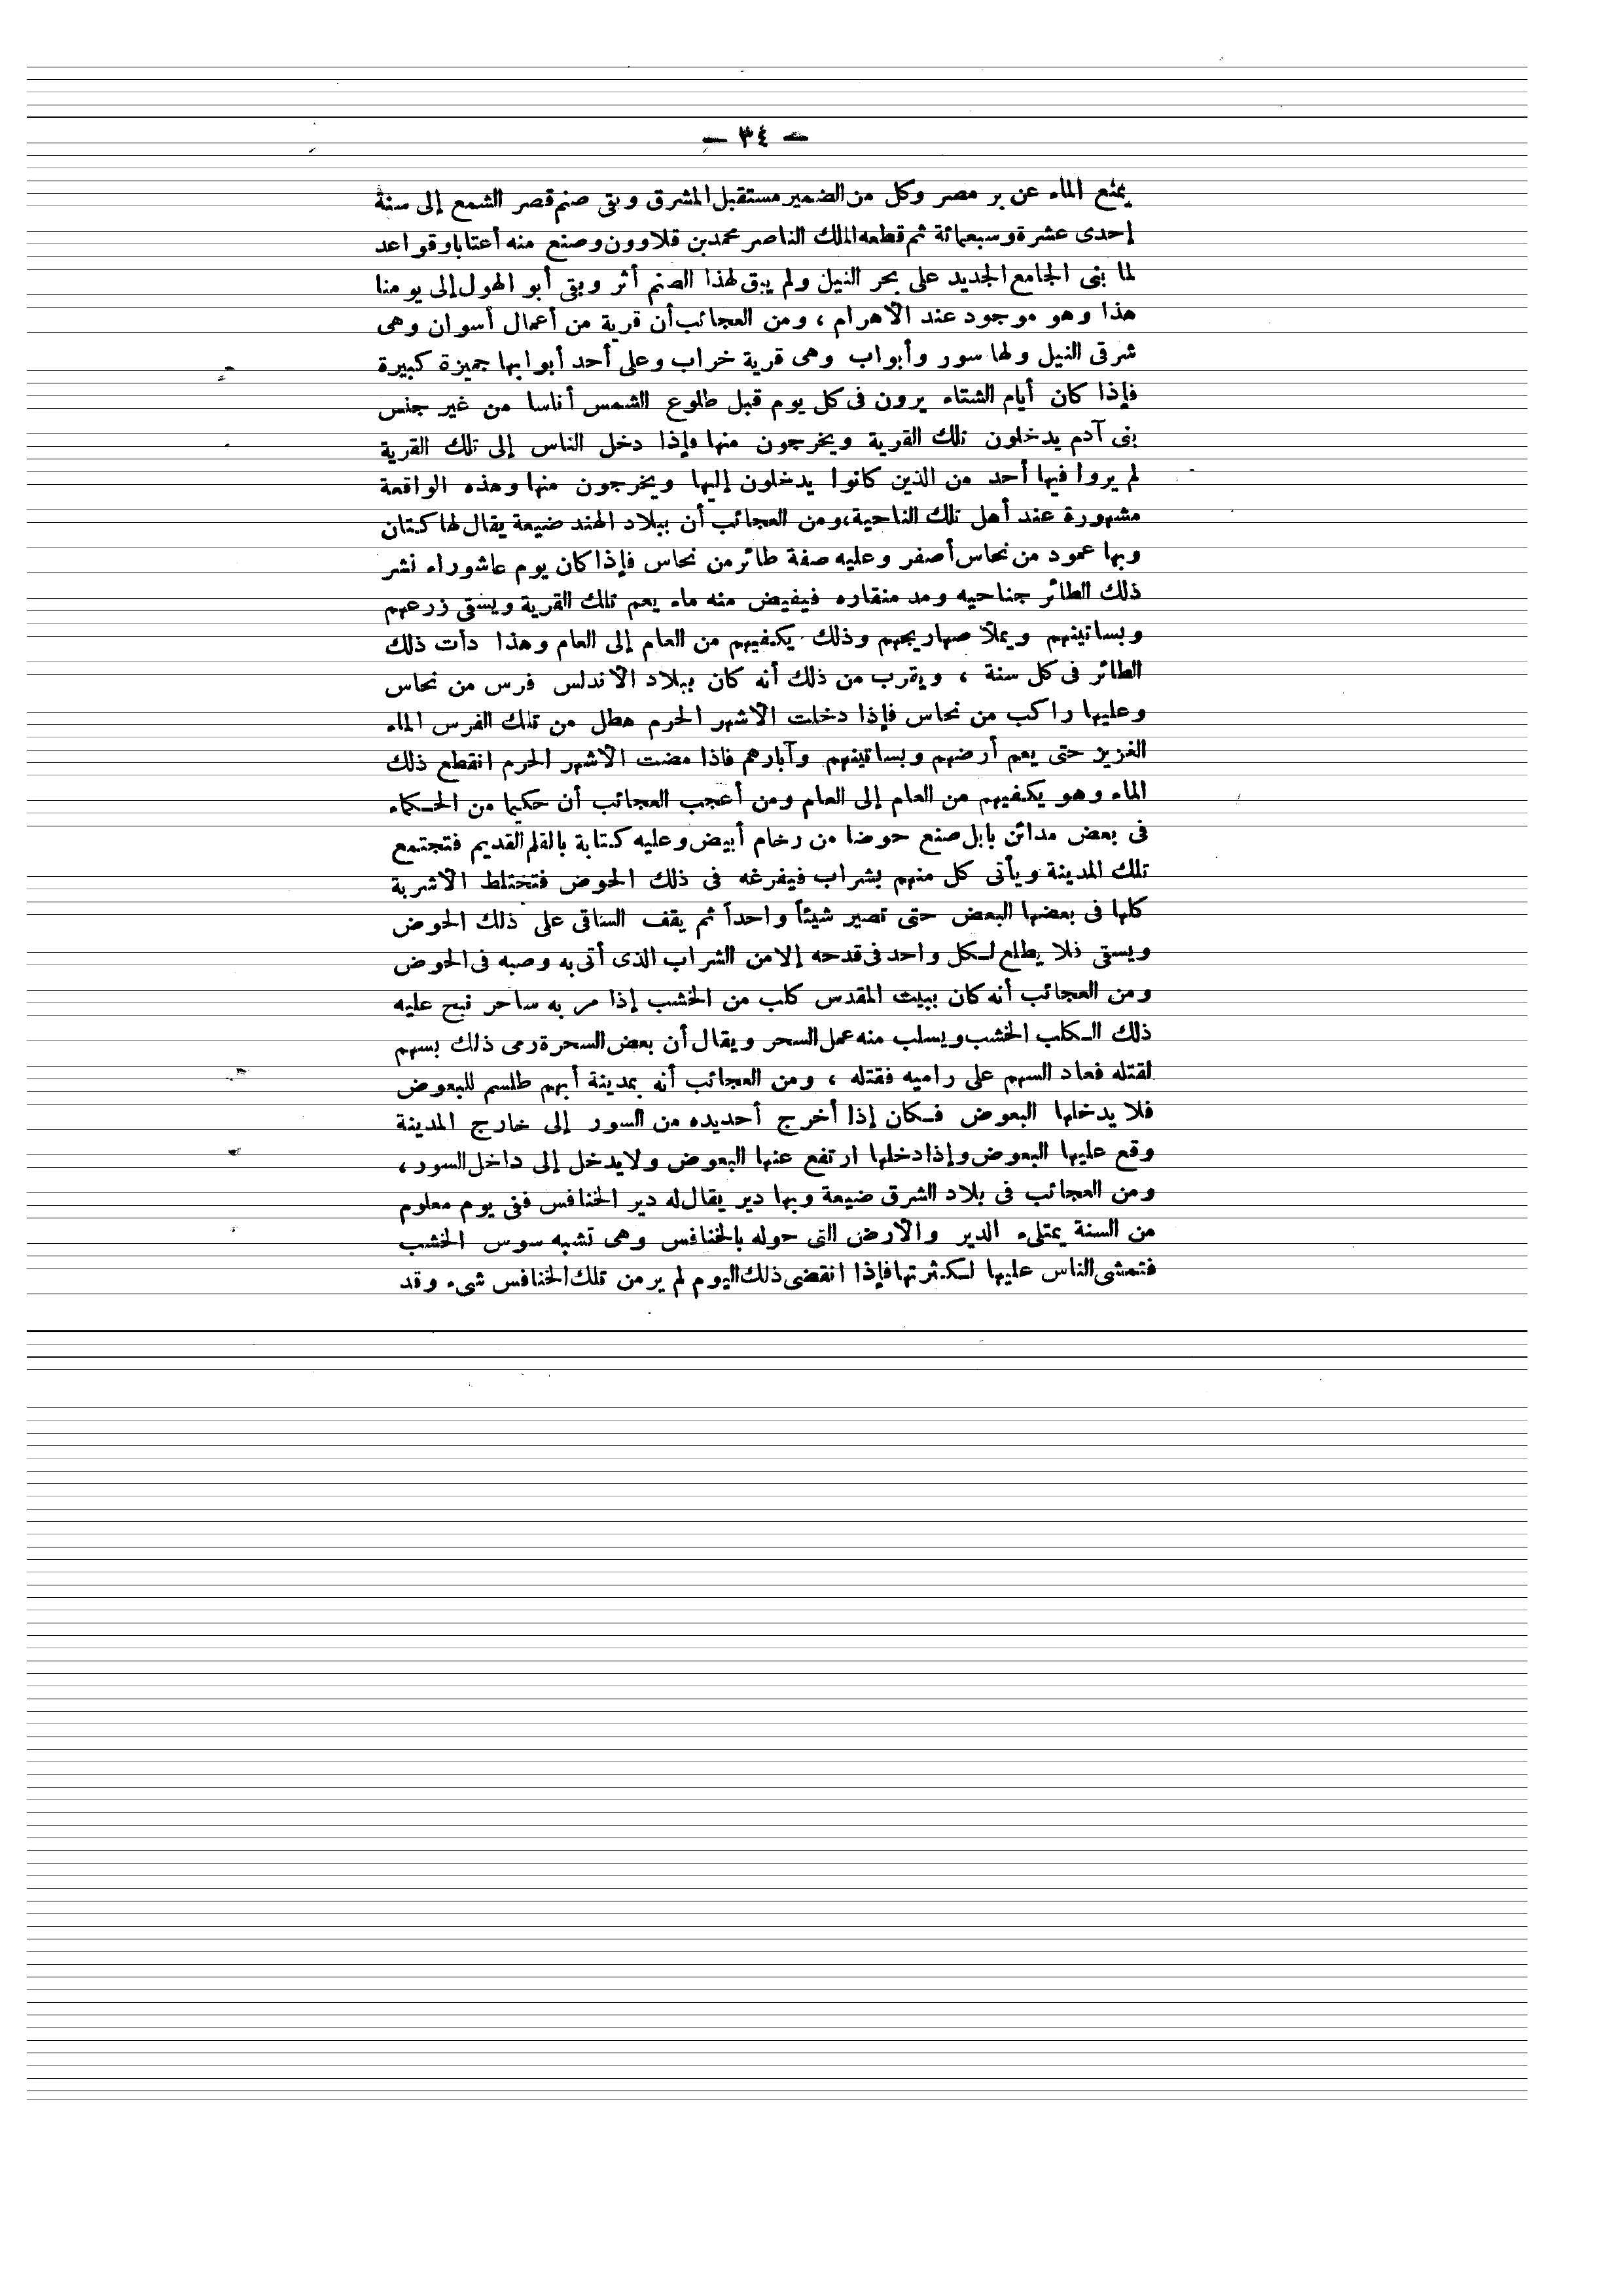 — ٣٤ —
يمنع الماء عن بر مصر وكل من الضمير مستقبل المشرق وبقى صنم قصر الشمع إلى سنة
إحدى عشرة وسبعمائة ثم قطعه الملك الناصر محمد بن قلاوون وصنع منه أعتابا وقواعد
لما بنى الجامع الجديد على بحر النيل ولم يبق لهذا الصنم أثر وبقى أبو الهول إلى يومنا
هذا وهو موجود عند الأهرام ، ومن العجائب أن قرية من أعمال أسوان وهى
شرقى النيل ولها سور وأبواب وهى قرية خراب وعلى أحد أبوابها جميزة كبيرة
فإذا كان أيام الشتاء يرون فى كل يوم قبل طلوع الشمس أناسا من غير جنس
بنى آدم يدخلون تلك القرية ويخرجون منها وإذا دخل الناس إلى تلك القرية
لم يروا فيها أحد من الذين كانوا يدخلون إليها ويخرجون منها وهذه الواقعة
مشهورة عند أهل تلك الناحية، ومن العجائب أن ببلاد الهند ضيعة يقال لها كتان
وبها عمود من نحاس أصفر وعليه صفة طائر من نحاس فإذا كان يوم عاشوراء نشر
ذلك الطائر جناحيه ومد منقاره فيفيض منه ماء يعم تلك القرية ويسقى زرعهم
وبساتينهم ويملأ صهاريجهم وذلك يكفيهم من العام إلى العام وهذا دأت ذلك
الطائر فى كل سنة ، ويقرب من ذلك أنه كان ببلاد الأندلس فرس من نحاس
وعليها راكب من نحاس فإذا دخلت الأشهر الحرم هطل من تلك الفرس الماء
الغزيز حتى يعم أرضهم وبساتينهم وآبارهم فاذا مضت الأشهر الحرم انقطع ذلك
الماء وهو يكفيهم من العام إلى العام ومن أعجب العجائب أن حكيما من الحكماء
فى بعض مدائن بابل صنع حوضا من رخام أبيض وعليه كتابة بالقلم القديم فتجتمع
تلك المدينة ويأتى كل منهم بشراب فيفرغه فى ذلك الحوض فتختلط الأشربة
كلها فى بعضها البعض حتى تصير شيئاً واحداً ثم يقف الساقى على ذلك الحوض
ويسقى فلا يطلع لكل واحد فى قدحه إلا من الشراب الذى أتى به وصبه فى الحوض
ومن العجائب أنه كان ببيت المقدس كلب من الخشب إذا مر به ساحر نبح عليه
ذلك الكلب الخشب ويسلب منه عمل السحر ويقال أن بعض السحرة رمى ذلك بسهم
لقتله فعاد السهم على راميه فقتله ، ومن العجائب أنه بمدينة أبهم طلسم للبعوض
فلا يدخلها البعوض فكان إذا أخرج أحد يده من السور إلى خارج المدينة
وقع عليها البعوض وإذا دخلها ارتفع عنها البعوض ولا يدخل إلى داخل السور ،
ومن العجائب فى بلاد الشرق ضيعة وبها دير يقال له دير الخنافس ففى يوم معلوم
من السنة يمتلىء الدير والأرض التى حوله بالخنافس وهى تشبه سوس الخشب
فتمشى الناس عليها لكثرتها فإذا انقضى ذلك اليوم لم ير من تلك الخنافس شىء وقد